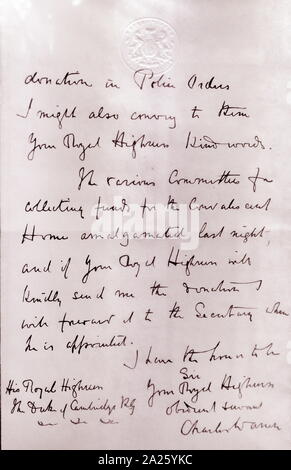 donation in Police Orders
I might also convey to them
Your Royal Highness kind words.
The various Committees for
collecting funds for the Convalescent
Home amalgamated last night,
and if Your Royal Highness will
kindly send me the donation I
will forward it to the Secretary when
he is appointed.
I have the honor to be
Sir
Your Royal Highness
obedient servant
Charles Warren
His Royal Highness
The Duke of Cambridge KG
alamy
Image ID: 2A25YKC
www.alamy.com